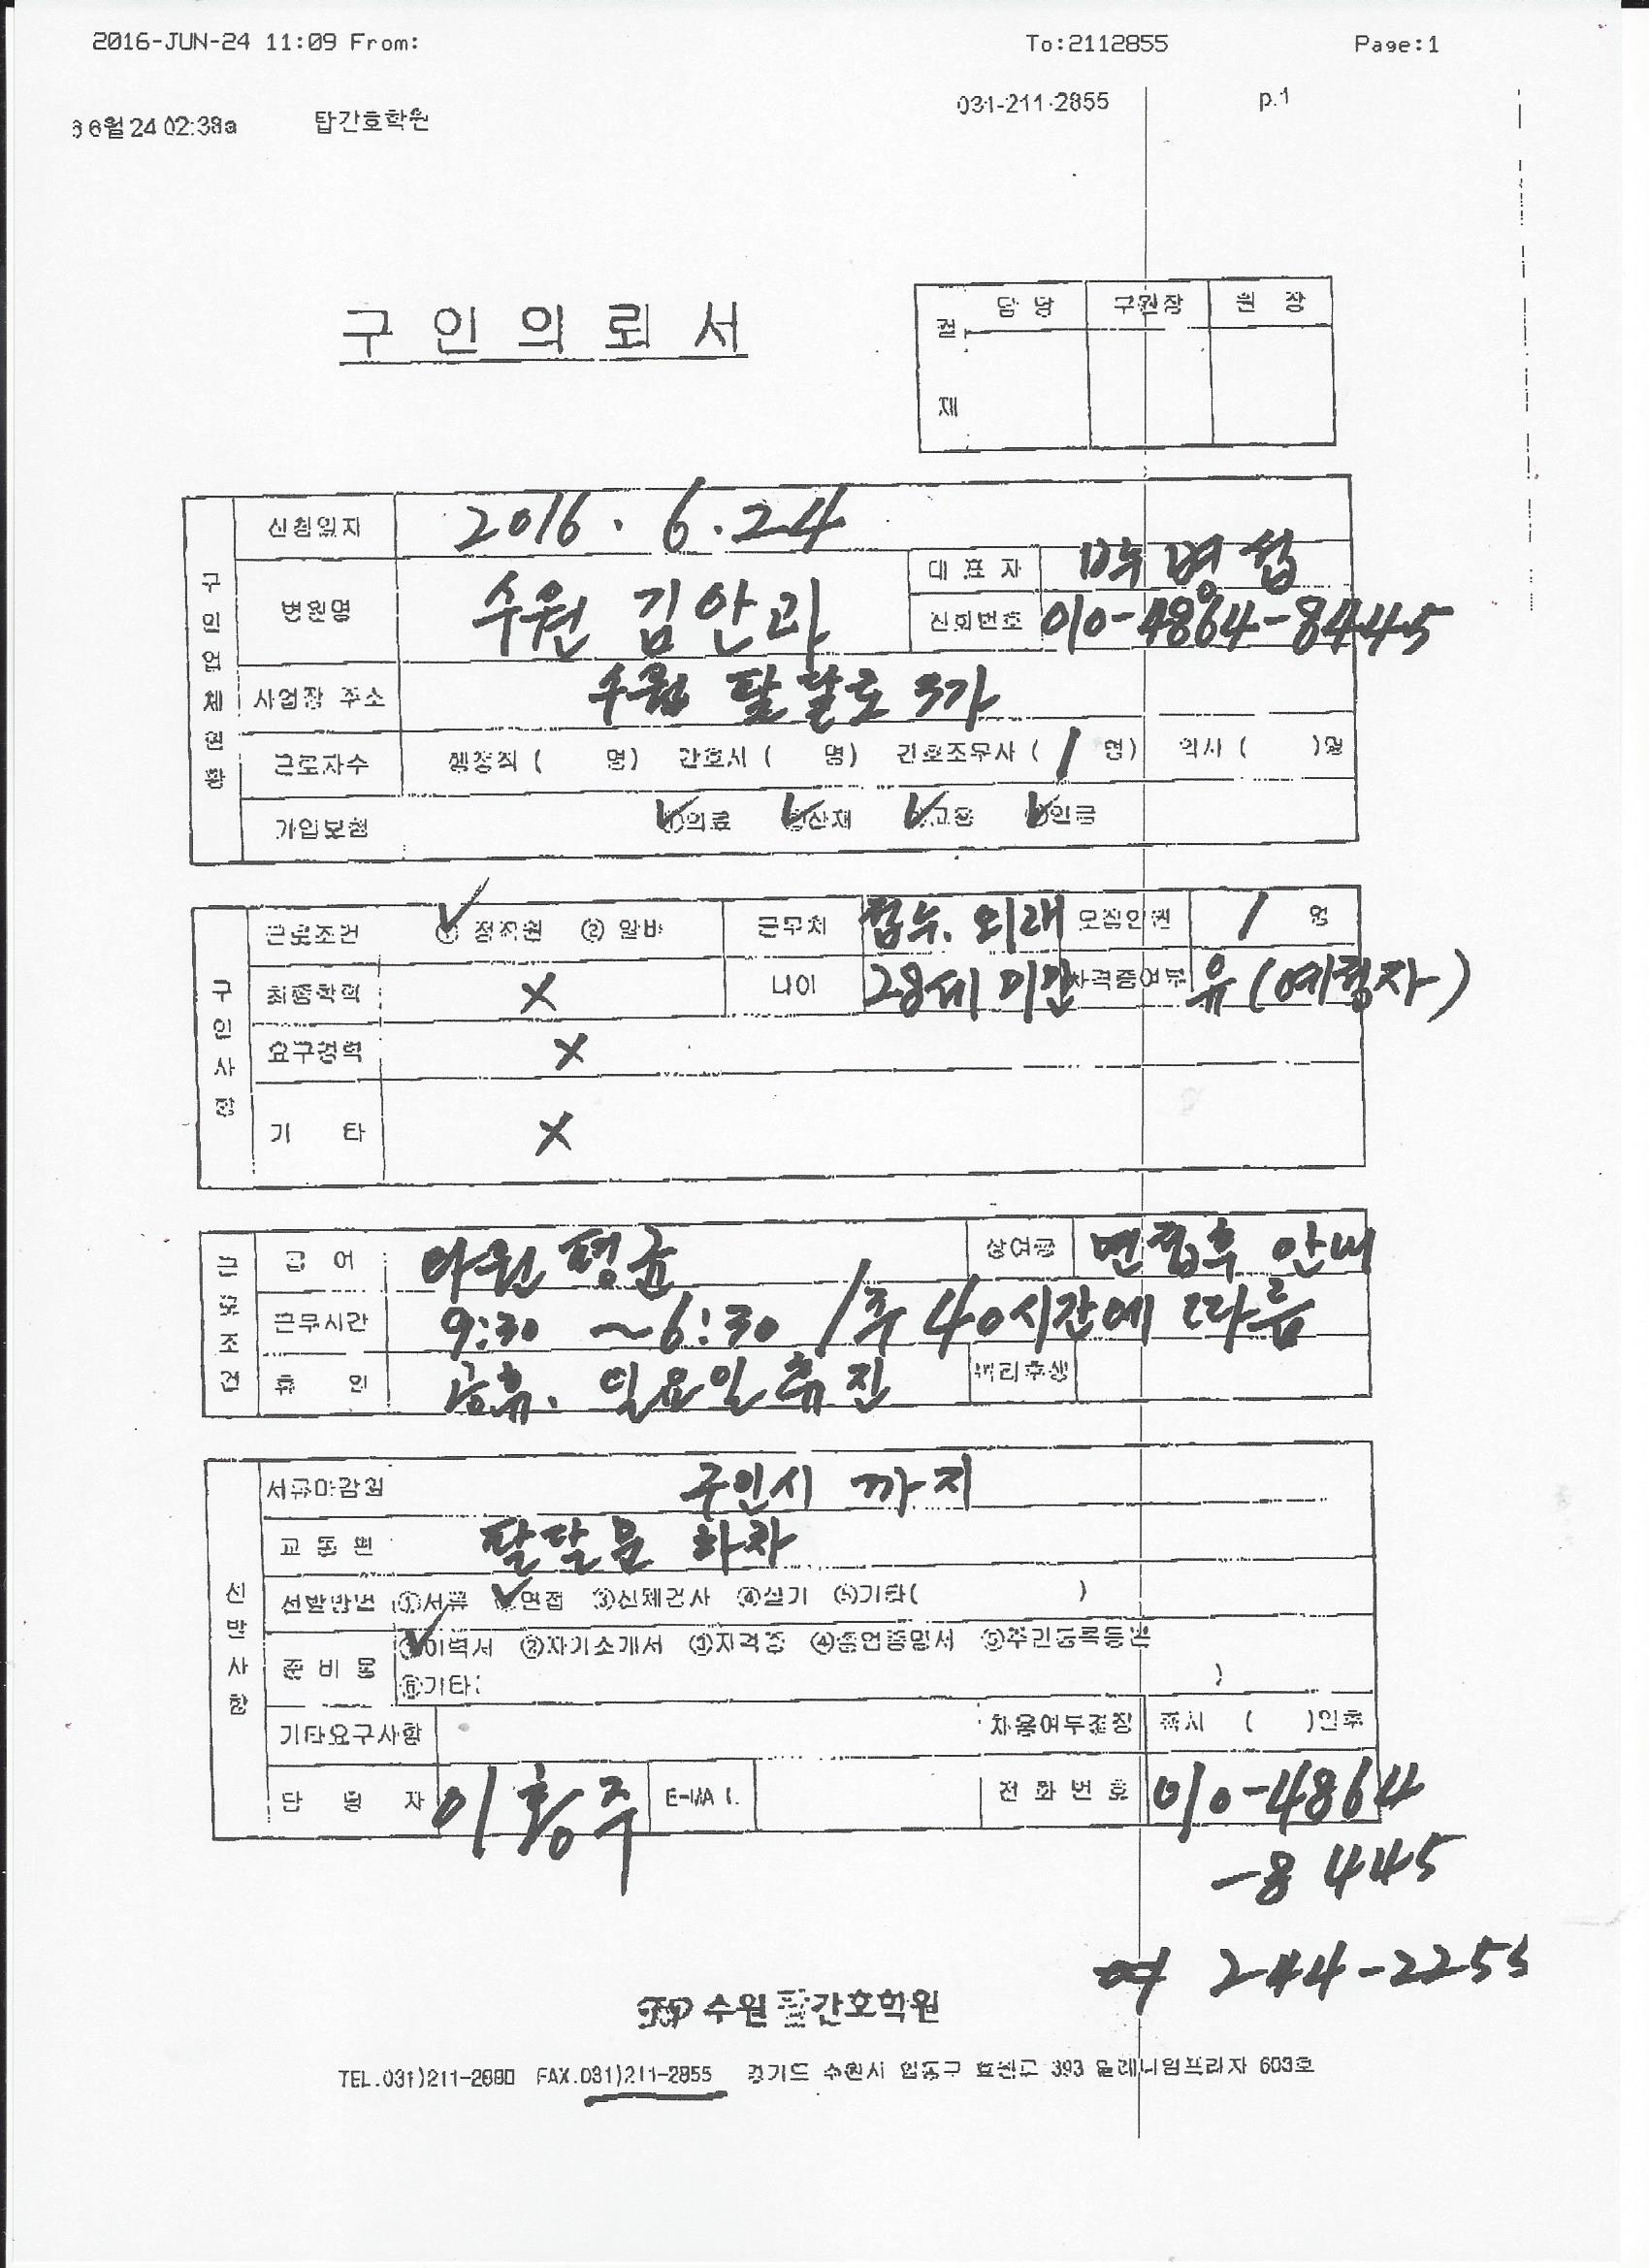 2016-JUN-24 11:09 From: To:2112855 Page:1
6월 24 02:38a 탑간호학원 031-211-2855 p.1
구 인 의 뢰 서
결 재 담 당 구원장 원 장
구 인 업 체 현 황
신청일자 2016 . 6 . 24
병원명 수원 김안과 대 표 자 명섭
전화번호 010-4864-8445
사업장 주소 수원 팔달로 3가
근로자수 행정직 ( 명) 간호사 ( 명) 간호조무사 ( 1 명) 의사 ( )명
가입보험 ①의료 산재 고용 연금
구 인 사 항
근로조건 ① 정직원 ② 알바 근무처 접수. 외래 모집인원 1 명
최종학력 X 나이 28세 미만 자격증여부 유 (예정자)
요구경력 X
기 타 X
근 로 조 건
급 여 병원 평균 상여금 면접후 안내
근무시간 9:30 ~6:30 / 주 40시간에 따름
휴 일 공휴. 일요일 휴진 복리후생
선 발 사 항
서류마감일 구인시 까지
교 통 편 팔달문 하차
선발방법 ①서류 면접 ③신체검사 ④실기 ⑤기타( )
준 비 물 ①이력서 ②자기소개서 ③자격증 ④졸업증명서 ⑤주민등록등본
⑥기타( )
기타요구사항 채용여부결정 즉시 ( )일후
담 당 자 이황주 E-MAIL 전 화 번 호 010-4864
-8445
244-2255
TOP 수원 탑간호학원
TEL.031)211-2880 FAX.031)211-2855 경기도 수원시 팔달구 효원로 393 밀레니엄프라자 603호